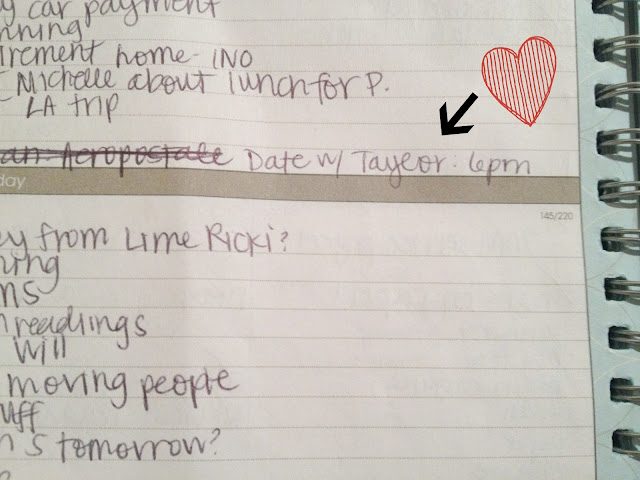 car payment
irement home - INO
Michelle about lunch for P.
- LA trip
Aeropostale Date w/ Tayeor · 6pm
day
145/220
ey from Lime Ricki?
ning
ns
readings
Will
moving people
uff
n's tomorrow?